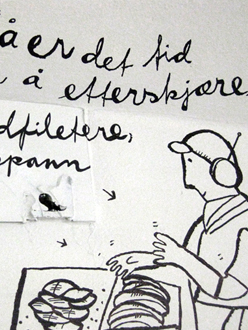 å er det tid
å etterskjære
dfiletere,
spann